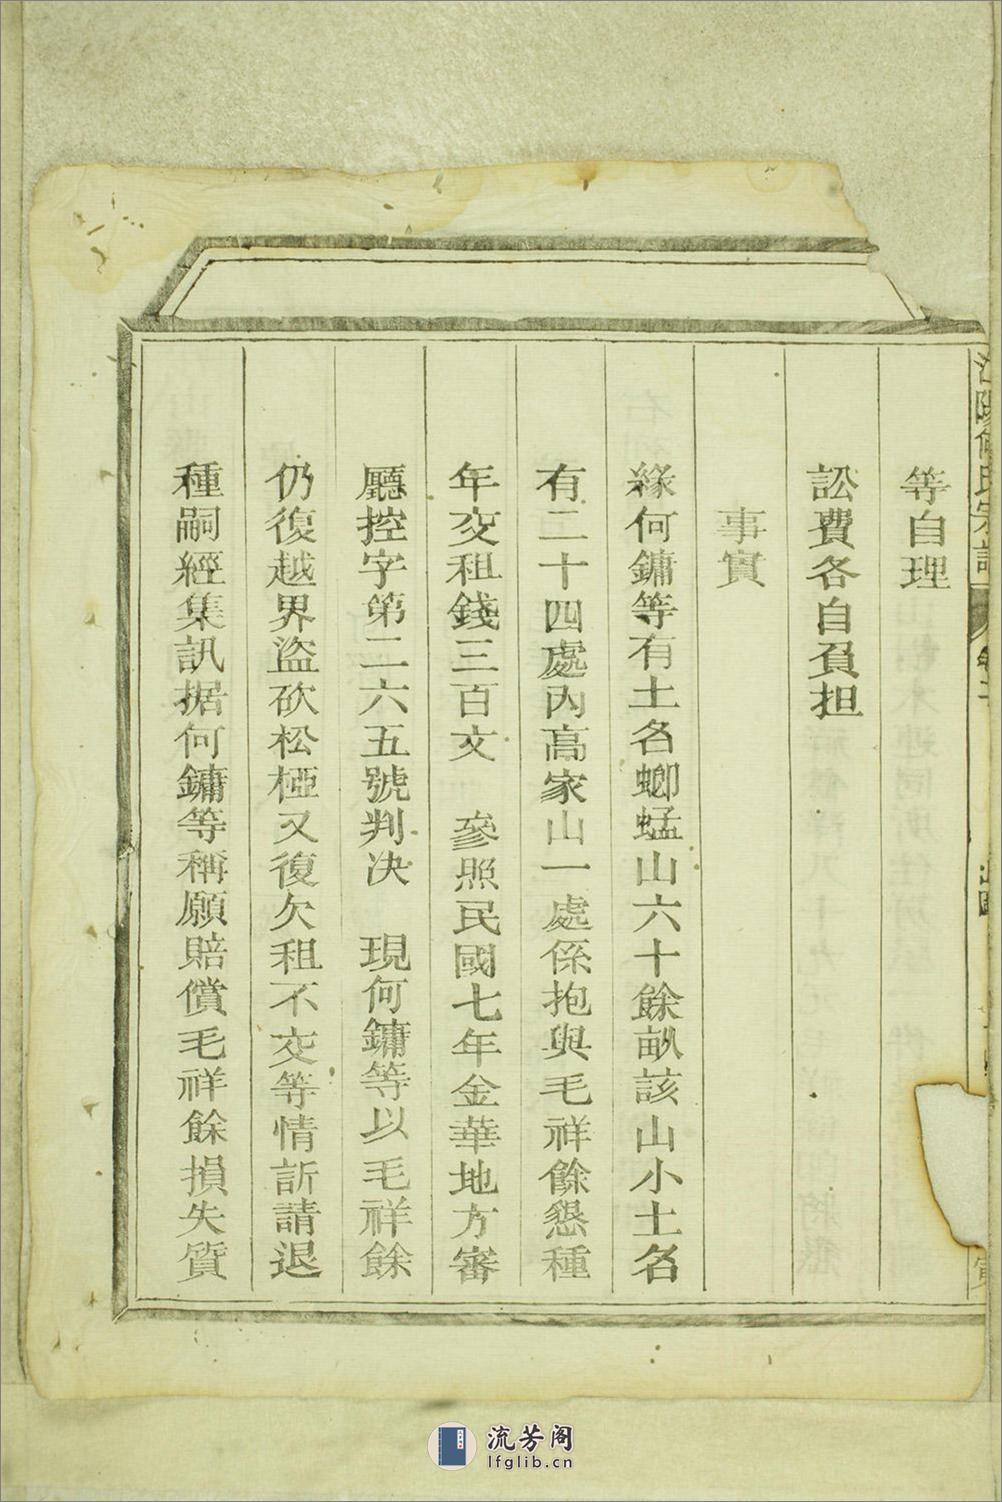 宗譜
等自理
訟費各自負担
事實
緣何鏞等有土名蝍蜢山六十餘畝該山小土名
有二十四處內高家山一處係抱與毛祥餘懇種
年交租錢三百文 參照民國七年金華地方審
廳控字第二六五號判决 現何鏞等以毛祥餘
仍復越界盜砍松椏又復欠租不交等情訴請退
種嗣經集訊据何鏞等稱願賠償毛祥餘損失質
流芳阁
lfglib.cn